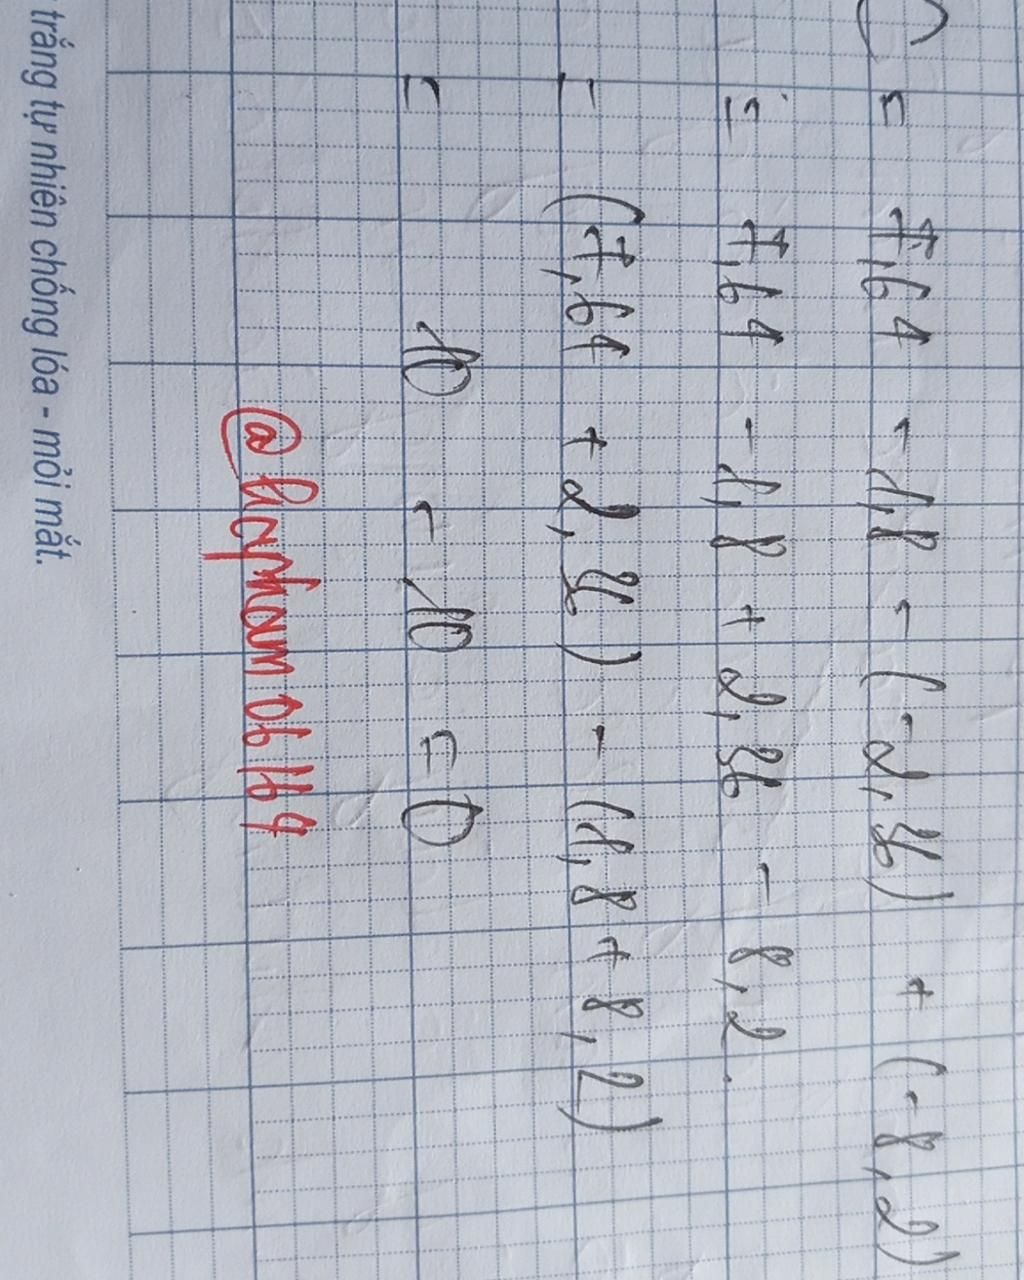 = 7,64 - 1,8 - (-2,36) + (-8,2)
= 7,64 - 1,8 + 2,36 - 8,2.
= (7,64 + 2,36) - (1,8 + 8,2)
= 10 - 10 = 0
trắng tự nhiên chống lóa - mỏi mắt.